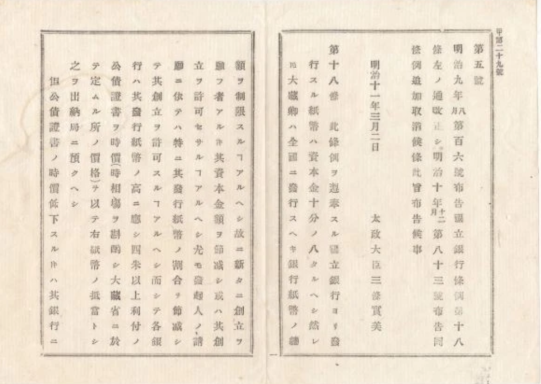 甲第二十九號
第五號
明治九年八月第百六號布告國立銀行條例第十八
條左ノ通改正シ明治十年十二月第八十三號布告同
條例追加取消候條此旨布告候事
明治十一年三月二日
太政大臣三條實美
第十八條 此條例ヲ遵奉スル國立銀行ヨリ發
行スル紙幣ハ資本金十分ノ八タルヘシ然レ
𪜈大藏卿ハ全國ニ發行スヘキ銀行紙幣ノ總
額ヲ制限スルコアルヘシ故ニ新タニ創立ヲ
願フ者アル𪜈其資本金額ヲ節減シ或ハ其創
立ヲ許可セサルコアルヘシ尤モ發起人ノ請
願ニ依テハ特ニ其發行紙幣ノ割合ヲ節减シ
テ其創立ヲ許可スルコアルヘシ而シテ各銀
行ハ其發行紙幣ノ高ニ應シ四朱以上利付ノ
公債證書ヲ時價(時相場ヲ斟酌シ大藏省ニ於
テ定ムル所ノ價格)ヲ以テ右紙幣ノ抵當トシ
之ヲ出納局ニ預クヘシ
但公債證書ノ時價低下スル𪜈ハ其銀行ニ